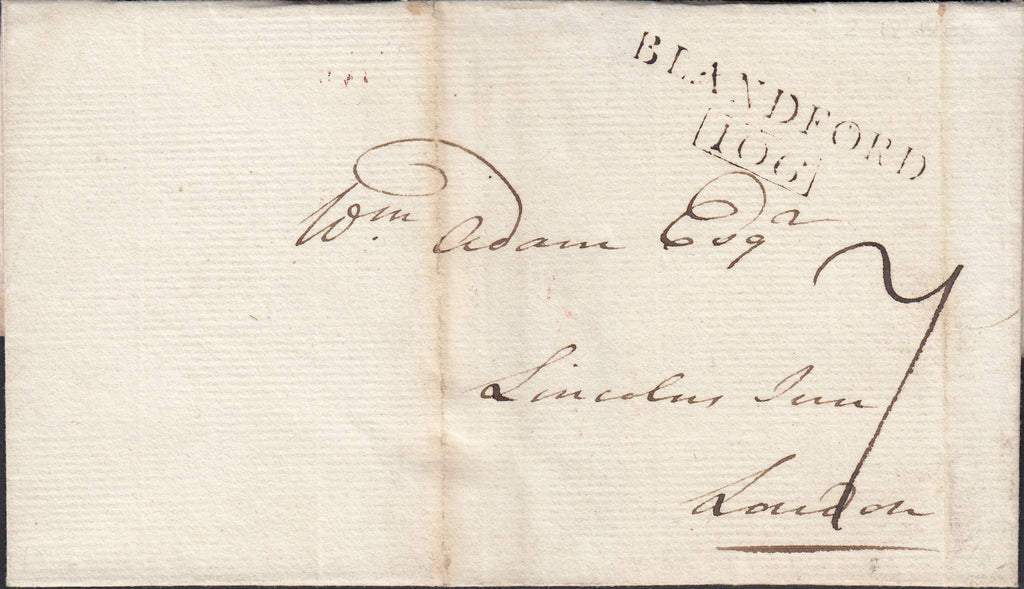 BLANDFORD
106
Wm Adam Esqr
7
Lincolns Inn
London